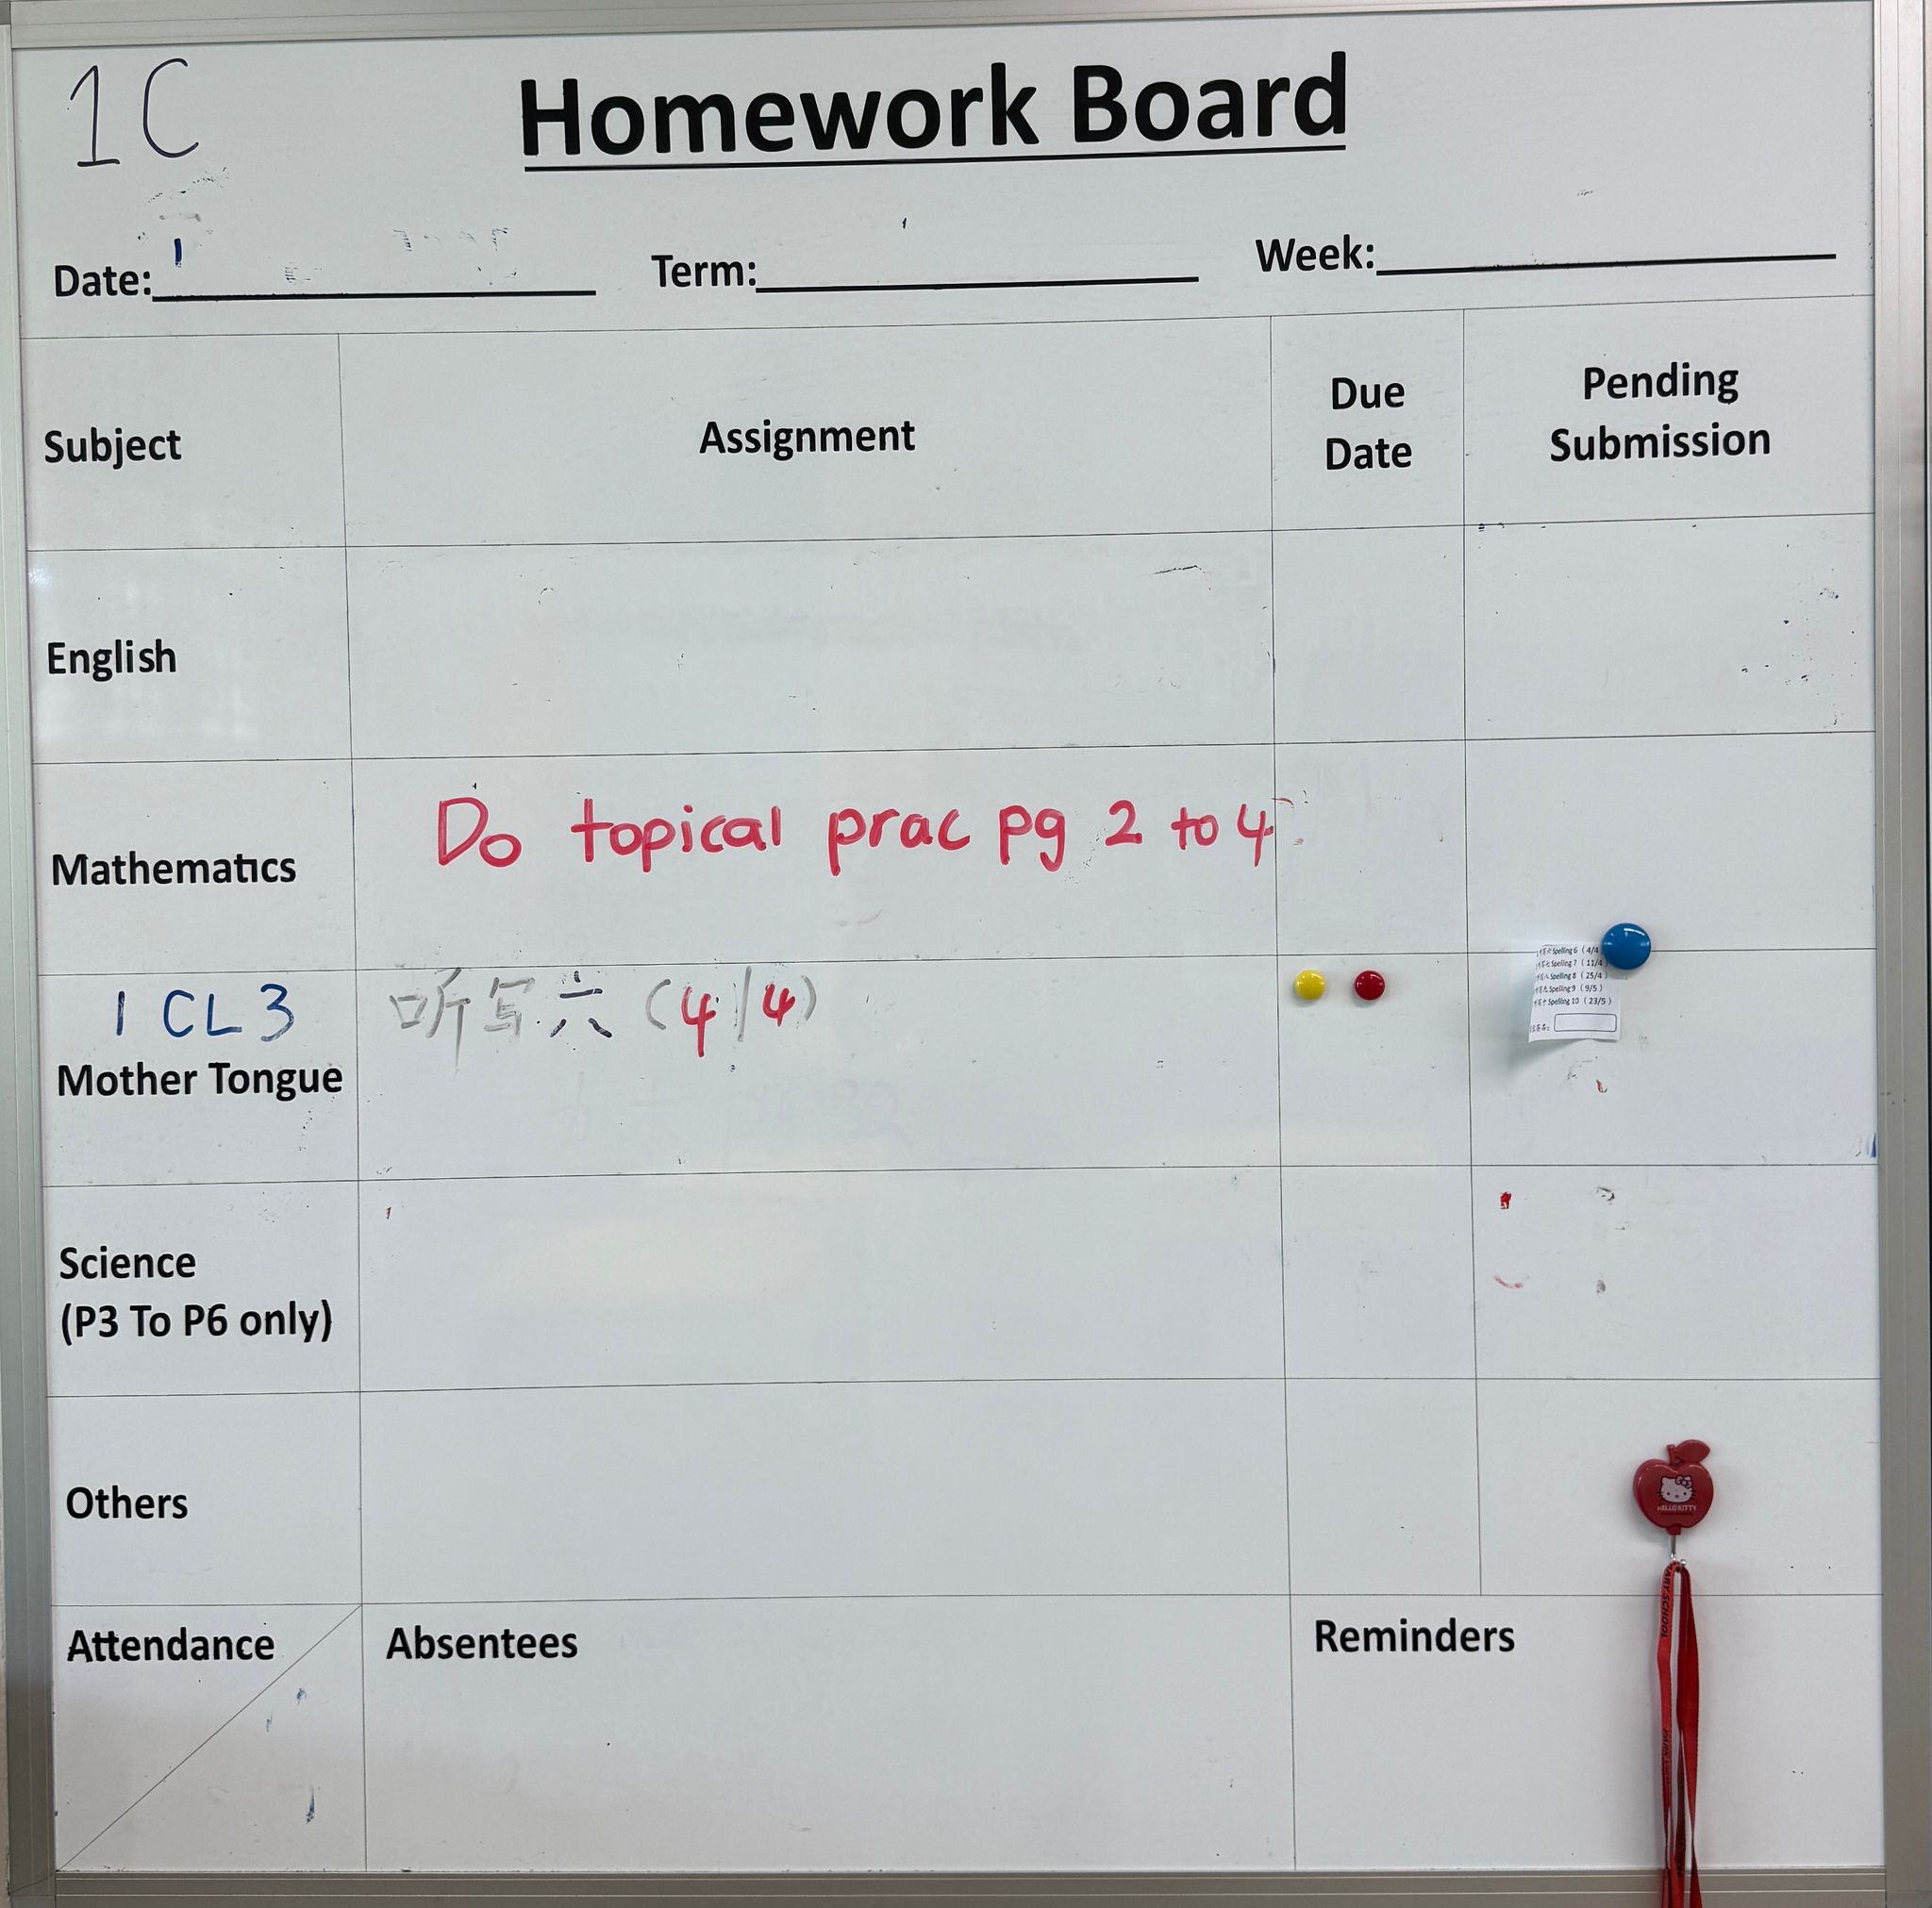 1C
Homework Board
Date: Term: Week:
Subject Assignment Due Date Pending Submission
English
Mathematics Do topical prac pg 2 to 4
1 CL3 听写六 (4/4)
Mother Tongue
Spelling 6 (4/4
Spelling 7 (11/4)
Spelling 8 (25/4)
Spelling 9 (9/5)
Spelling 10 (23/5)
Science
(P3 To P6 only)
Others
HELLO KITTY
Attendance Absentees Reminders